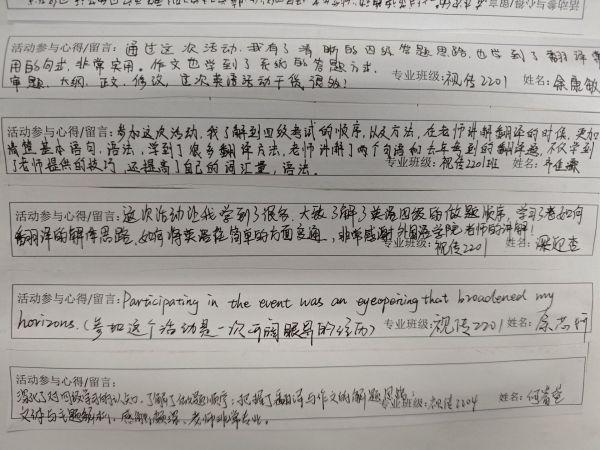 活动参与心得/留言：通过这次活动，我有了清晰的四级答题思路，也学到了翻译常
用的句式，非常实用。作文也学到了系统的答题方式，
审题、大纲、正文、修改，这次英语活动干货满满！ 专业班级：视传2201 姓名：余康敏
活动参与心得/留言：参加这次活动，我了解到四级考试的顺序，以及方法，在老师讲解翻译的时候，更加
基本语句，语法，学到了很多翻译方法，老师讲解了两个句语和去年考到的翻译题，不仅学到
了老师提供的技巧，还提高了自己的词汇量，语法。 专业班级：视传2201班 姓名：
活动参与心得/留言：这次活动让我学到了很多，大致了解了英语四级的做题顺序，学习了老如何
翻译的解停思路，如何将英语往简单的方面变通，非常感谢外国语学院老师的讲解！
专业班级：视传2201 姓名：梁
活动参与心得/留言：Participating in the event was an eyeopening that broadened my
horizons.（参加这个活动是一次开阔眼界的经历） 专业班级：视传2201 姓名：余
活动参与心得/留言：
深化了对四级学习的认知，了解了做题顺序；把握了翻译与作文的解题思路；
老师非常专业。 专业班级：视传2204 姓名：何